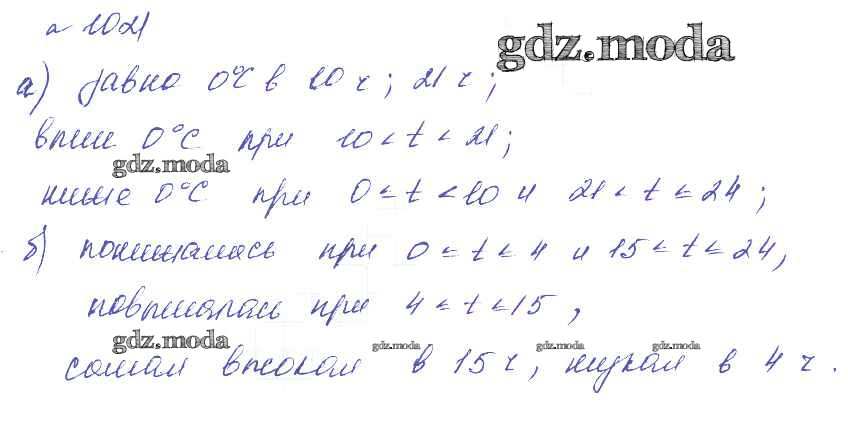 № 1021
gdz.moda
а) равно 0°C в 10 ч; 21 ч;
выше 0°C при 10 < t < 21;
gdz.moda
ниже 0°C при 0 ≤ t < 10 и 21 < t ≤ 24;
б) понижалась при 0 ≤ t ≤ 4 и 15 ≤ t ≤ 24,
повышалась при 4 ≤ t ≤ 15,
gdz.moda gdz.moda gdz.moda gdz.moda
самая высокая в 15 ч, низкая в 4 ч.